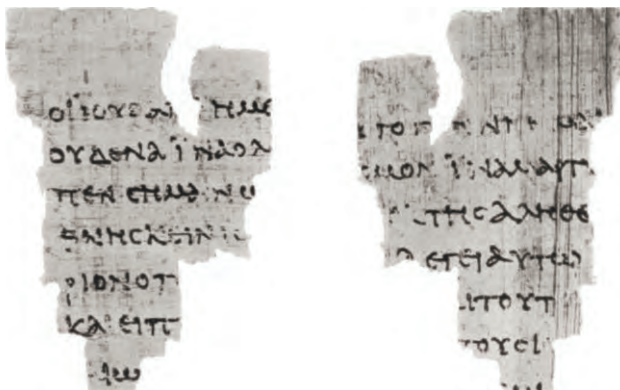 ΟΙ ΪΟΥΔΑΙ ΗΜΕ
ΟΥΔΕΝΑ ΪΝΑ Ο Λ
ΠΕΝ ϹΗΜΑΙΝΩ
ΘΝΗϹΚΕΙΝ
ΡΙΟΝ Ο Π
ΚΑΙ ΕΙΠ
ΑΙΩ
ϹΜΟΝ ΪΝΑ ΜΑΡΤ
ΤΗϹ ΑΛΗΘΕ
ΛΕΓΕΙ ΑΥΤΩ
ΑΙ ΤΟΥΤ
ΤΟΥϹ Ι